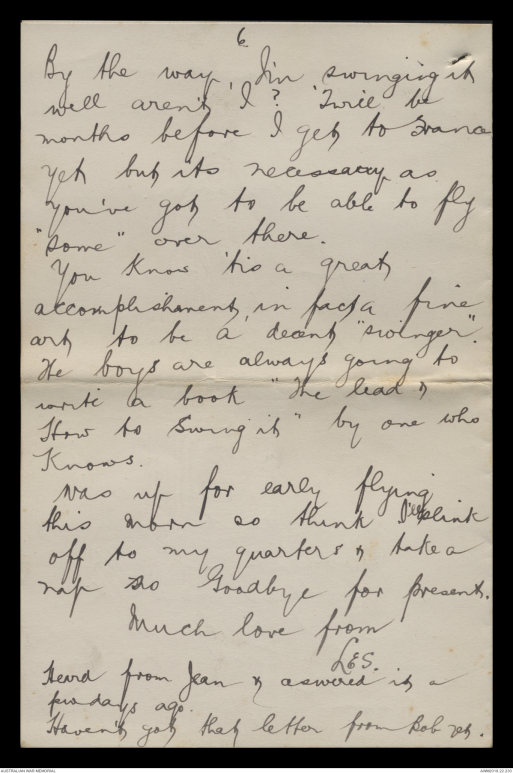 6
By the way, I'm swinging it
well aren't I? 'Twill be
months before I get to France
yet but its necessary as
you've got to be able to fly
"some" over there.
You know 'tis a great
accomplishment, in fact a fine
art to be a decent "swinger".
The boys are always going to
write a book "The lead &
How to Swing it" by one who
Knows.
Was up for early flying
this morn so think I'll slink
off to my quarters & take a
nap so Goodbye for present.
Much love from
LES.
Heard from Jean & aswered it a
few days ago.
Haven't got that letter from Bob yet.
AUSTRALIAN WAR MEMORIAL